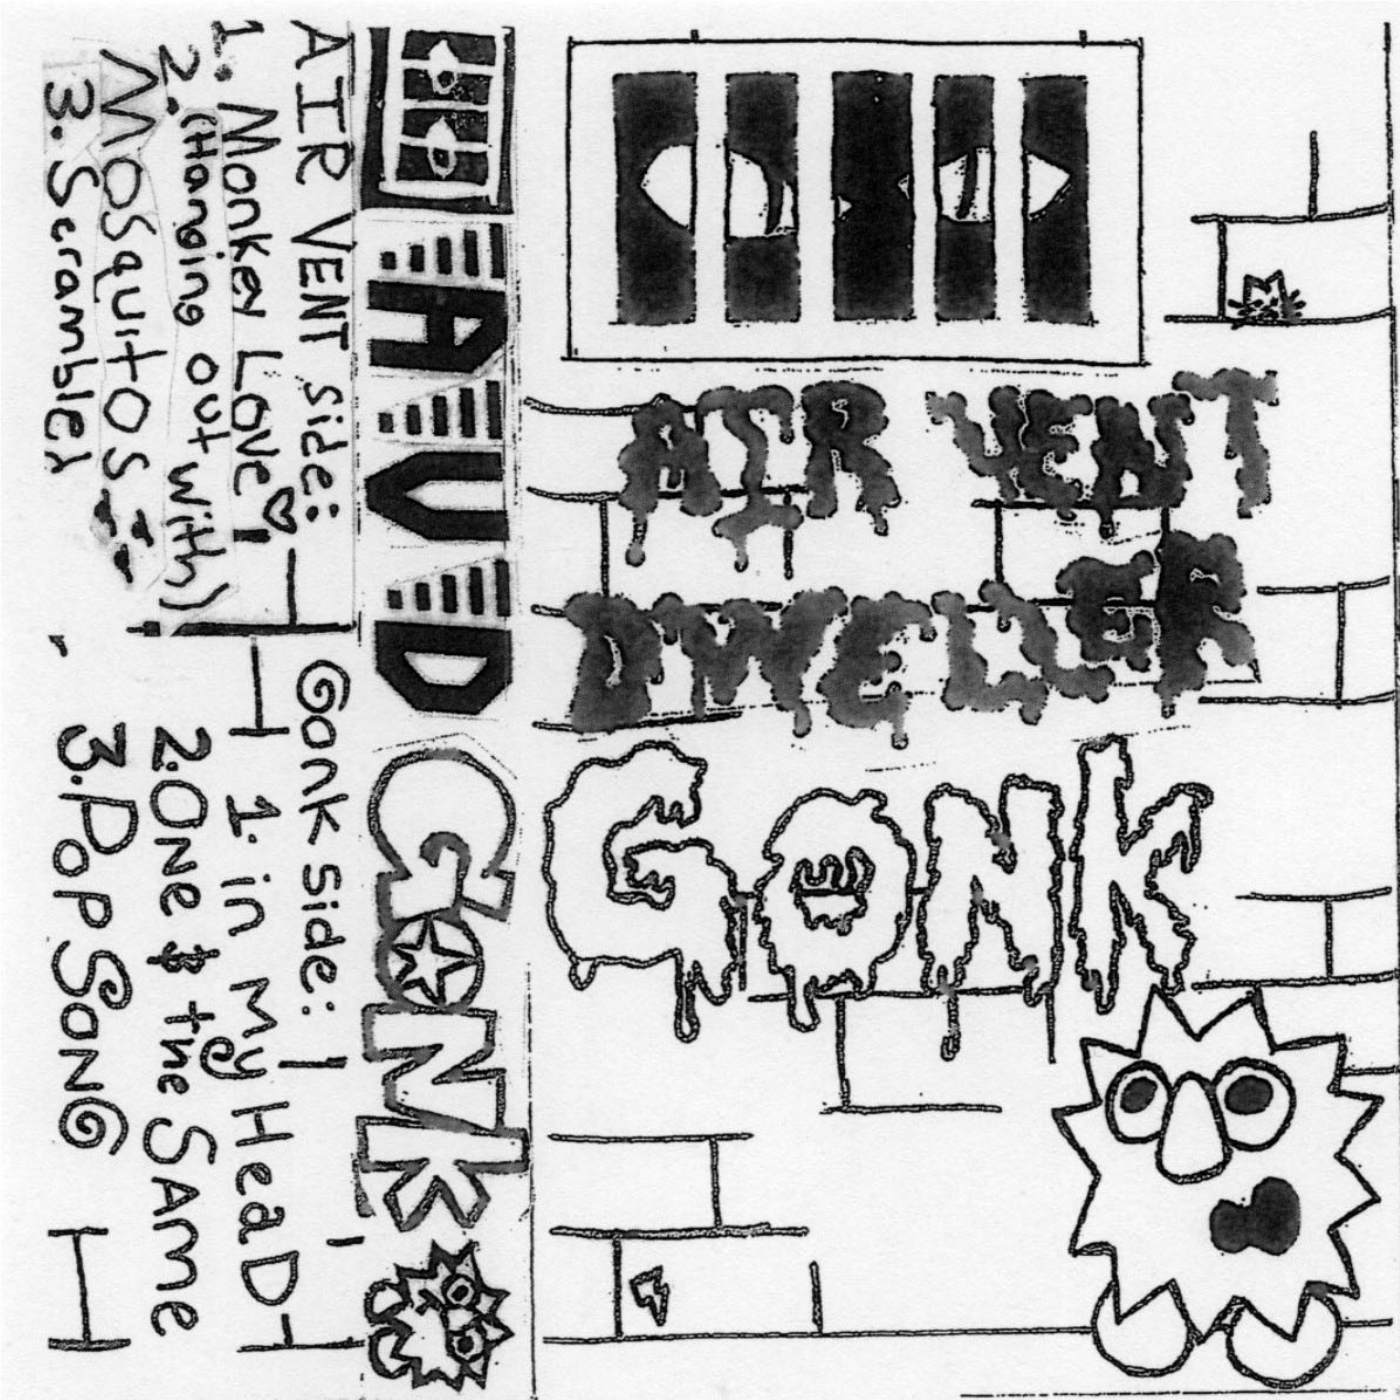 AIR VENT
DWELLER
GONK
AVD
GONK
AIR VENT Side:
1. Monkey Love!
2. (Hanging out with)
MosquitOS
3. Scrambley
Gonk Side:
1. in my HeaD
2. One $ the SAme
3. Pop SonG